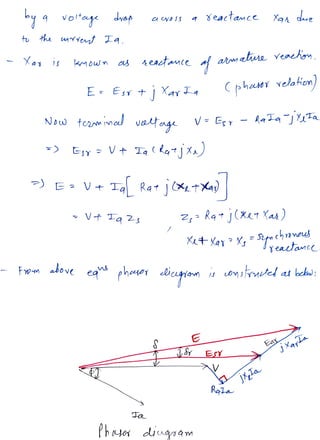 by a voltage drop across a reactance Xar due
to the current Ia.
- Xar is known as reactance of armature reaction.
E = Esr + j Xar Ia (phasor relation)
Now terminal voltage V = Esr - RaIa - jXlIa
=> Esr = V + Ia (Ra + jXl)
=> E = V + Ia [Ra + j(Xl + Xar)]
= V + Ia Zs , Zs = Ra + j(Xl + Xar)
Xl + Xar = Xs = Synchronous
reactance
- From above eqns phasor diagram is constructed as below:
E
δ
δr
Esr
Ear
jXarIa
V
jXlIa
RaIa
Ia
Phasor diagram